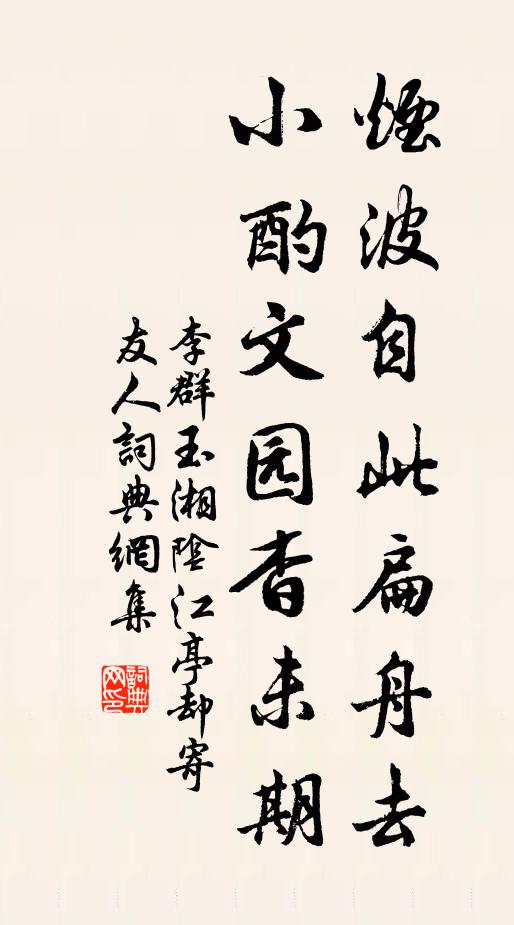 煙波自此扁舟去
小酌文园杳未期
李群玉湘陰江亭却寄
友人詞典網集
詞典
网印